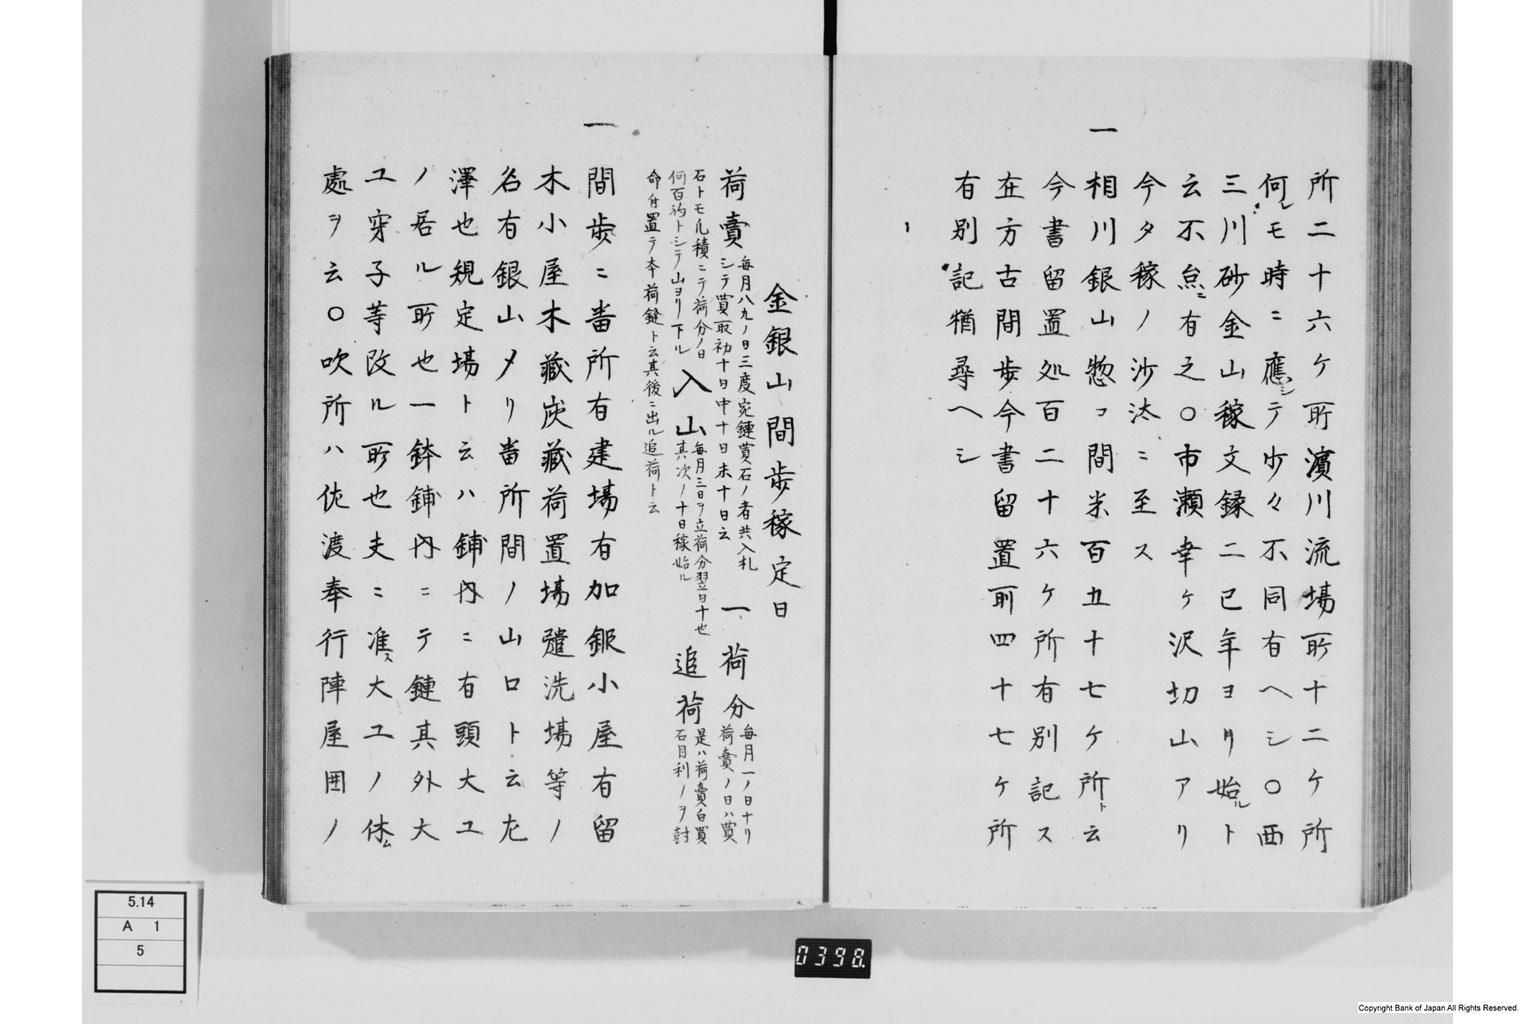 所二十六ケ所濱川流場所十二ケ所
何レモ時ニ應シテ少々不同有ヘシ〇西
三川砂金山稼文録二巳年ヨリ始ルト
云不㸃ニ有之〇市瀬幸ケ沢切山アリ
今タ稼ノ沙汰ニ至ス
一
相川銀山惣コ間米百五十七ケ所ト云
今書留置処百二十六ケ所有別記ス
在方古間歩今書留置所四十七ケ所
有別記猶尋ヘシ
金銀山間歩稼定日
荷賣
毎月八九ノ日三度宛鏈買石ノ者共入札
シテ買取初十日中十日末十日云
一荷分
毎月一ノ日十リ
荷賣ノ日ハ買
石トモ凡積ニテ荷分ノ日
何百釣トシテ山ヨリ下ル
入山
毎月三日ヲ立荷分翌日十也
其次ノ十日稼始ル
追荷
是ハ荷賣白買
石目利ノヲ封
命付置テ本荷鏈ト云其後ニ出ル追荷ト云
一
間歩ニ畨所有建場有加鍜小屋有留
木小屋木蔵炭蔵荷置場鏈洗場等ノ
名有銀山メリ畨所間ノ山口ト云尤
澤也規定場ト云ハ鋪内ニ有頭大工
ノ居ル所也一鉢鋪内ニテ鏈其外大
工穿子等改ル所也夫ニ准ス大工ノ休ム
處ヲ云〇吹所ハ佐渡奉行陣屋囲ノ
5.14
A 1
5
0398.
Copyright Bank of Japan All Rights Reserved.